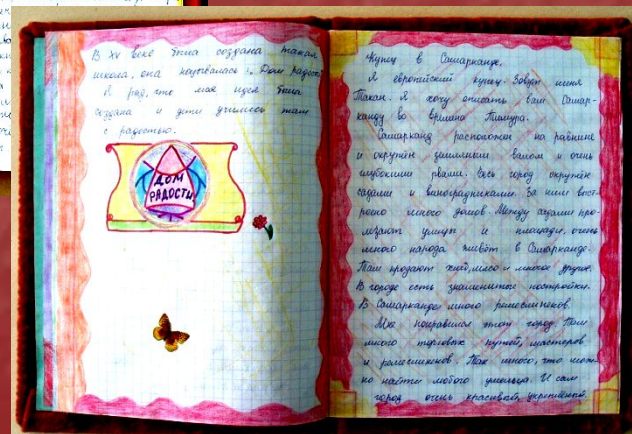 В XV веке была создана такая
школа, она называлась "Дом радости
Я рад, что моя идея была
создана и дети учились там
с радостью.
ДОМ
РАДОСТИ
Купец в Самарканде.
Я европейский купец. Зовут меня
Такан. Я хочу описать вам Самар-
канду во времена Тимура.
Самарканд расположен на равнине
и окружён земляным валом и очень
глубокими рвами. Весь город окружён
садами и виноградниками. За ним выст-
роено много домов. Между садами про-
лезают улицы и площади, очень
много народа живёт в Самарканде.
Там продают хлеб, мясо и многое другое.
В городе есть знаменитые постройки.
В Самарканде много ремесленников.
Мне понравился этот город. Там
много торговых путей, мастеров
и ремесленников. Так много, что мож-
но найти любого умельца. И сам
город очень красивый, укреплённый.